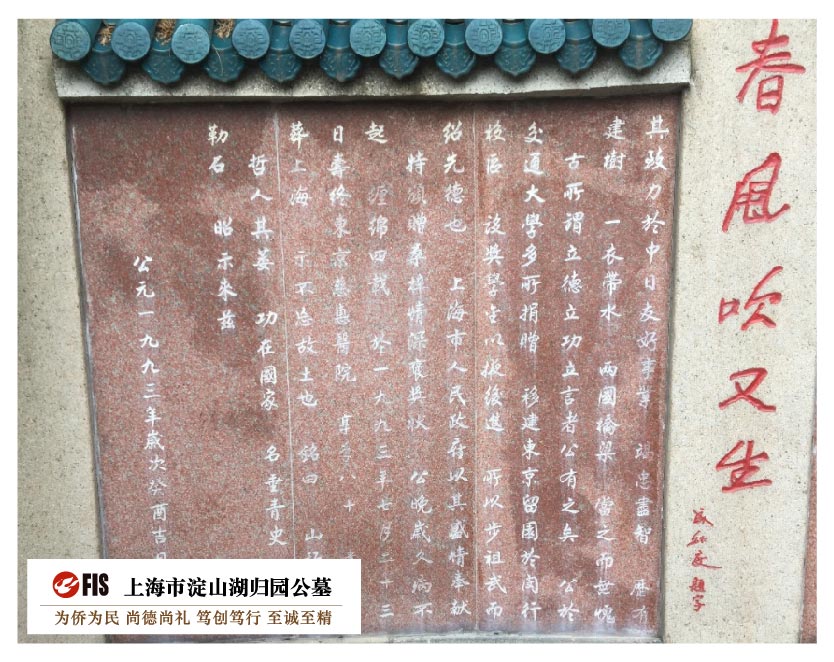 春風吹又生
其致力於中日友好事業 竭忠盡智 歷有
建樹 一衣帶水 兩國橋梁 當之而無愧
古所謂立德立功立言者公有之矣 公於
交通大學多所捐贈 移建東京留園於閔行
校區 設奬學金以掖後進 所以步祖武而
紹先德也 上海市人民政府以其盛情奉獻
特頒贈桑梓情深褒奬狀 公晚歲久病不
起 纏綿四載 於一九九三年七月二十三
日壽終東京慈惠醫院 享年八十
葬上海 示不忘故土也 銘曰 山
哲人其萎 功在國家 名垂青史
勒石 昭示來茲
公元一九九三年歲次癸酉吉日
FIS 上海市淀山湖归园公墓
为侨为民 尚德尚礼 笃创笃行 至诚至精